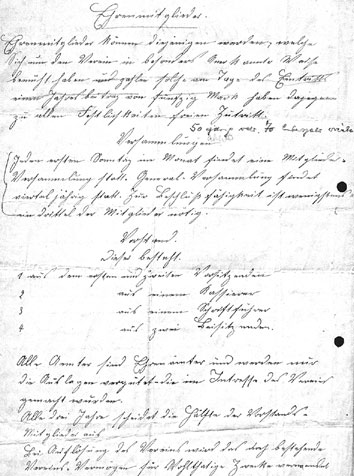 Ehrenmitglieder.
Ehrenmitglieder können diejenigen werden, welche
sich um den Verein in besonders anerkannte Weise
bemüht haben und zahlen solche am Tage des Eintritts
einen Jahresbeitrag von fünfzig Mark haben dagegen
zu allen Festlichkeiten freien Zutritt.
Versammlungen
Jeden ersten Sonntag im Monat findet eine Mitglieder
Versammlung statt. General-Versammlung findet
vierteljährig statt. Zur Beschlußfähigkeit ist wenigstens
ein drittel der Mitglieder nötig.
Vorstand.
Dieser besteht.
1 aus dem ersten und zweiten Vorsitzenden
2 aus einem Kassierer
3 aus einem Schriftführer
4 aus zwei Beisitzenden.
Alle Aemter sind Ehrenämter und werden nur
die Auslagen vergütet die im Intresse des Vereins
gemacht wurden.
Alle drei Jahre scheidet die Hälfte der Vorstands-
Mitglieder aus
Bei Auflösung des Vereins wird das noch bestehende
Vereins-Vermögen für Wohltätige Zwecke verwendet